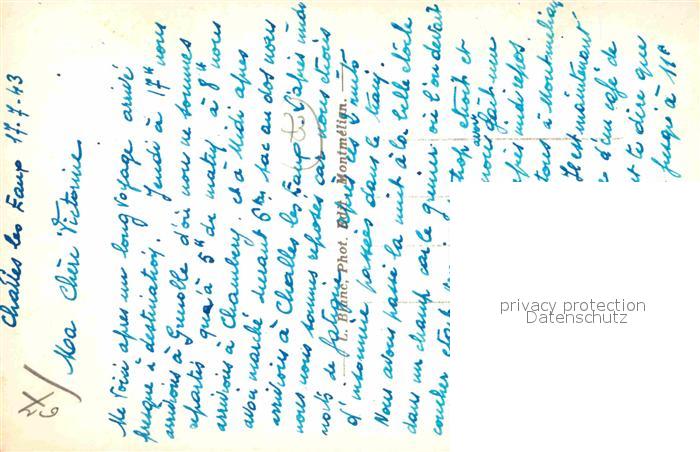 Challes les Eaux 17-7-43
Ma Chère Victorine
Me voici après un long voyage arrivé
presque à destination. Jeudi à 17h nous
arrivions à Grenoble d'où nous ne sommes
repartis qu'à 5h du matin à 8h nous
arrivions à Chambéry et à Midi après
avoir marché durant 6km sac au dos nous
arrivions à Challes les Eaux. L'après midi
nous nous sommes reposés car nous étions
morts de fatigue après les 2 nuits
d'insomnie passées dans le train.
Nous avons passé la nuit à la belle étoile
dans un champ car le grenier où l'on devait
coucher était
trop étroit et
nous avons fait une
après midi repos.
tous à Montmélian
Il est maintenant
d'un café de
et te dire que
jusqu'à 11h
L. Blanc, Phot. Edit., Montmélian.
privacy protection
Datenschutz